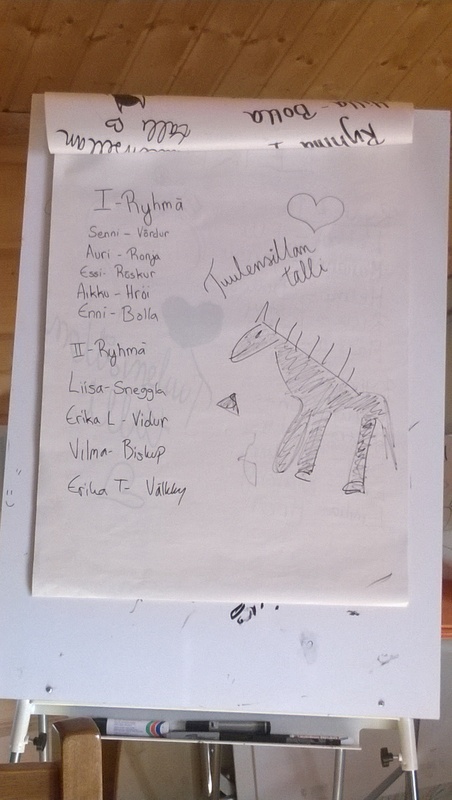 Bolla
Ryhmä I
talli
I-Ryhmä
Senni - Vördur
Auri - Ronja
Essi - Röskur
Aikku - Hrói
Enni - Bolla
II-Ryhmä
Liisa - Sneggla
Erika L - Vidur
Vilma - Biskup
Erika T - Välkky
Tuulensillan
talli